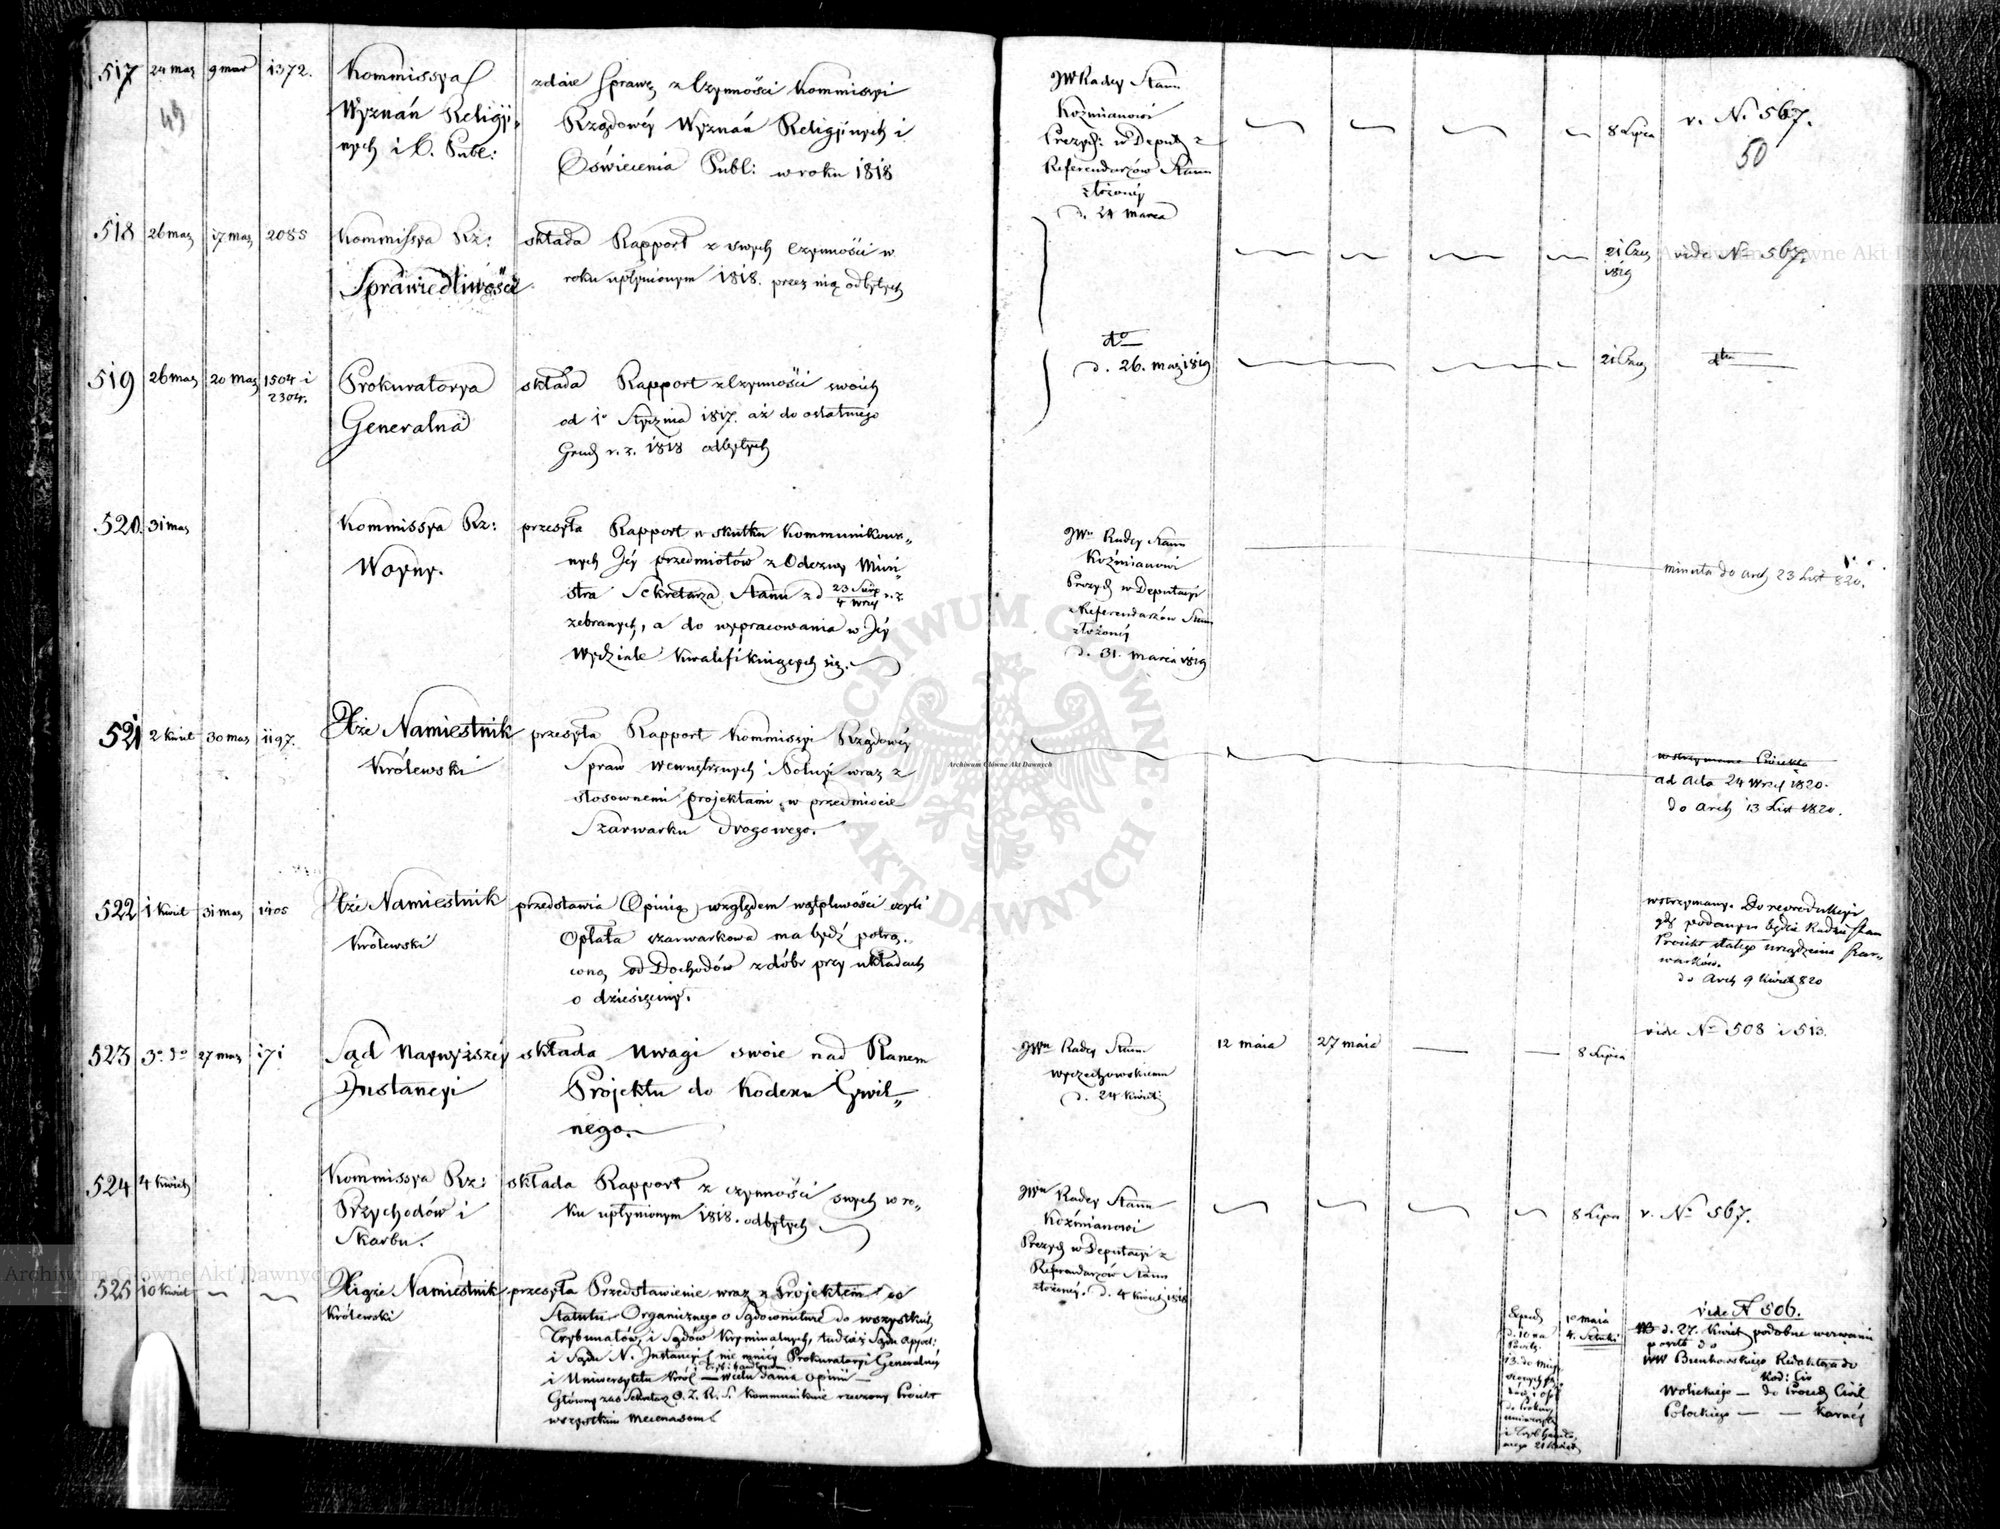 517 24 marz 9 mar 1372.
49
Kommissya
Wyznań Religij-
nych i O. Publ:
zdaie sprawę z Czynności Kommissyi
Rządowéy Wyznań Religijnych i
Oświecenia Publ: w roku 1818
JW Radcy Stanu
Koźmianowi
Prezyd: w Deput z
Referendarzów Stanu
złożonéy
d. 24 Marca
8 Lipca
v. No. 567.
50
518 26 marz 17 marz 2085
Kommissya Rz:
Sprawiedliwości
składa Rapport z swych Czynności w
roku upłynionym 1818. przez nią odbytych
21 Czer
1819
vide No 567.
519 26 marz 20 marz 1504 i
2304.
Prokuratorya
Generalna
składa Rapport z Czynności swoich
od 1o Stycznia 1817. aż do ostatniego
Grud r. z. 1818 odbytych
do
d. 26. marz 1819
21 Czer
dtto
520. 31 marz
Kommissya Rz:
Woyny.
przesyła Rapport w skutku kommunikowa-
nych Jéy przedmiotów z Odezwy Mini-
stra Sekretarza Stanu z d 23 Sierp r. z.
4 Wrz
zebranych, a do wypracowania w Jéy
Wydziale kwalifikuiących się.
JWu Radcy Stanu
Koźmianowi
Prezyd w Deputacyi
z Referendarzów Stanu
złożonéy
d. 31. Marca 1819
minuta do arch 23 List 820.
521 2 Kwiet 30 marz 1197.
Xże Namiestnik
Królewski
przesyła Rapport Kommissyi Rządowéy
Spraw Wewnętrznych i Policyi wraz z
stosownemi projektami w przedmiocie
Szarwarku drogowego.
ad Acta 24 Wrz 1820.
do Arch 13 List 1820.
522 1 Kwiet 31 marz 1405
Xże Namiestnik
Królewski
przedstawia Opinią względem wątpliwości czyli
Opłata szarwarkowa ma bydź potrą-
coną od Dochodów z dóbr przy układach
o dziesięciny.
wstrzymany. Do reprodukcyi
gdy podanym będzie Radzie Stanu
Proiekt stałego urządzenia Szar-
warków.
do Arch 9 Kwiet 820
523 3o do 27 marz 171
Sąd Naywyższey
Instancyi
składa Uwagi swoie nad Planem
Projektu do Kodexu Cywil-
nego.
JWu Radcy Stanu
Wyczechowskiemu
d. 24 Kwiet
12 maia 27 maia
8 Lipca
vide No 508 i 513.
524 4 Kwiet
Kommissya Rz:
Przychodów i
Skarbu.
składa Rapport z czynności swych w ro-
ku upłynionym 1818. odbytych
JWu Radcy Stanu
Koźmianowi
Prezyd w Deputacyi z
Referendarzów Stanu
złożonéy. d. 4 Kwiet 1819
8 Lipca
v. No 567.
525 10 Kwiet
Xiąże Namiestnik
Królewski
przesyła Przedstawienie wraz z Projektem do
Statutu Organicznego o Sądownictwie do wszystkich
Trybunałów i Sądów Kryminalnych, tudzież Sądu Appel:
i Sądu N. Instancyi nie mniéy Prokuratoryi Generalnéy
i Uniwersytetu Król
Główny zaś Sekretarz
wszystkim Mecenasom
10 maia
4. Sztuki
vide N 506.
d. 27. Kwiet podobne wezwanie
poszło do
Bieńkowskiego Redaktora do
Kod: Civ
Wolickiego — do Proced Civil
Potockiego — — Karnéy
Archiwum Główne Akt Dawnych
ARCHIWUM GŁÓWNE AKT DAWNYCH